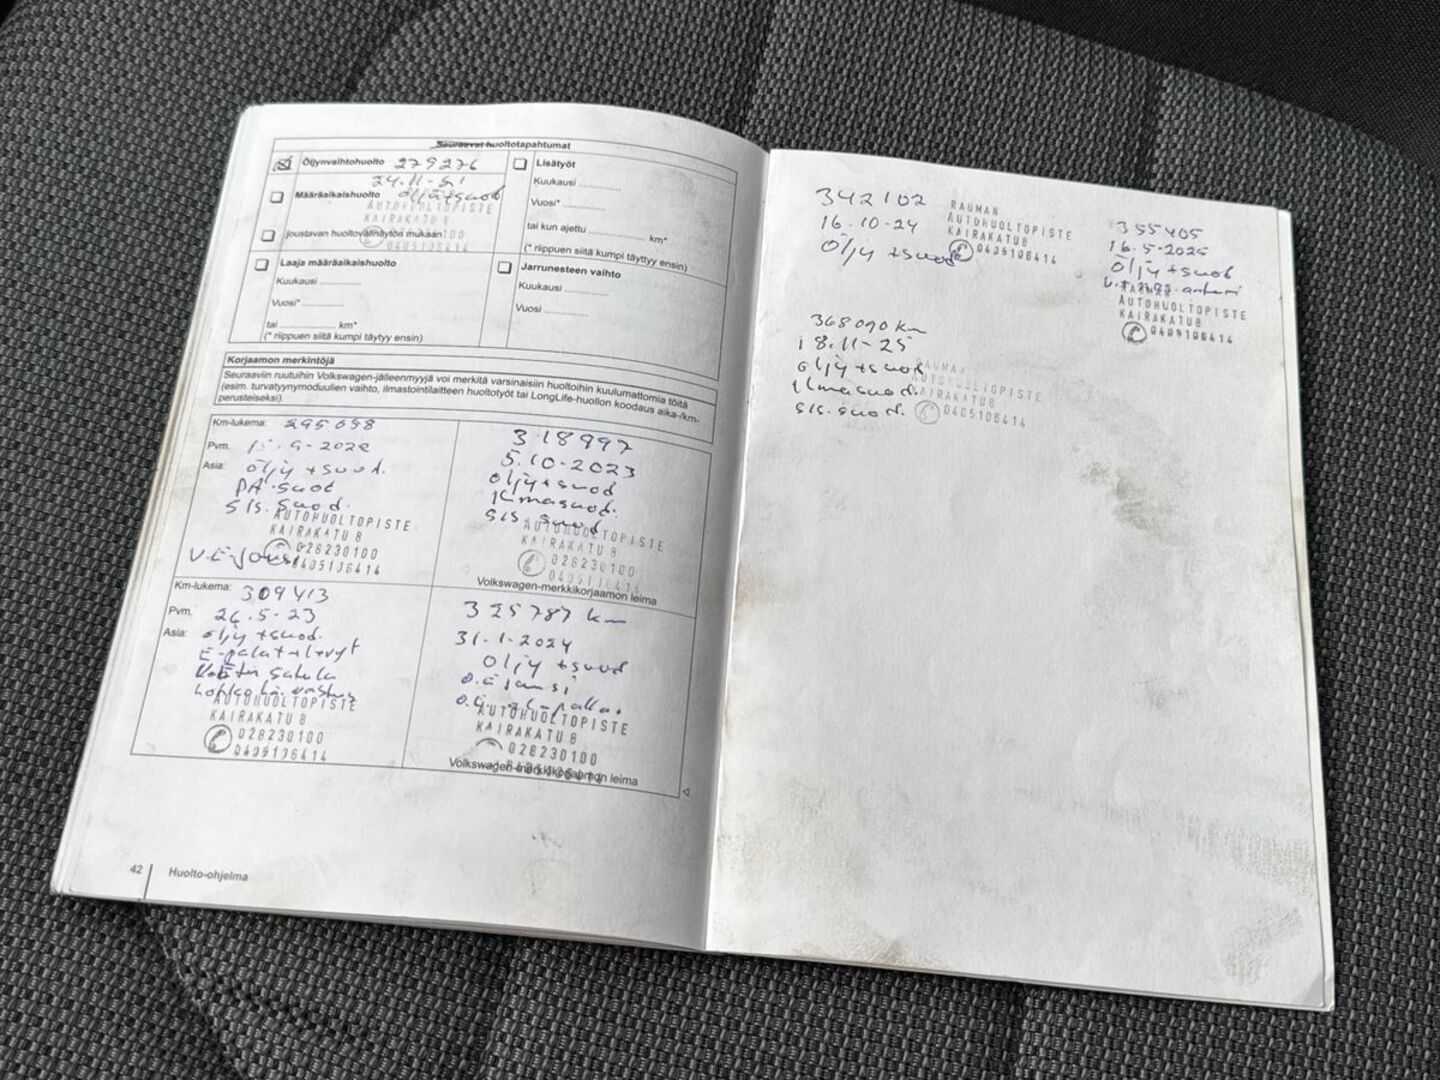 Seuraavat huoltotapahtumat
Öljynvaihtohuolto 279276
24.11-21
Määräaikaishuolto öljy+suod
AUTOHUOLTOPISTE
KAIRAKATU 8
joustavan huoltovälinäytön mukaan
0405106414
Laaja määräaikaishuolto
Kuukausi
Vuosi*
tai km*
(* riippuen siitä kumpi täytyy ensin)
Lisätyöt
Kuukausi
Vuosi*
tai kun ajettu km*
(* riippuen siitä kumpi täytyy ensin)
Jarrunesteen vaihto
Kuukausi
Vuosi
Korjaamon merkintöjä
Seuraaviin ruutuihin Volkswagen-jälleenmyyjä voi merkitä varsinaisiin huoltoihin kuulumattomia töitä
(esim. turvatyynymoduulien vaihto, ilmastointilaitteen huoltotyöt tai LongLife-huollon koodaus aika-/km-
perusteiseksi)
Km-lukema: 295098
Pvm. 15.9-2022
Asia: öljy+suod.
PA-suod
sis.suod.
AUTOHUOLTOPISTE
KAIRAKATU 8
028230100
V.E-jousi 0405106414
318997
5.10-2023
öljy+suod
ilmasuod.
sis.suod
AUTOHUOLTOPISTE
KAIRAKATU 8
028230100
Volkswagen-merkkikorjaamon leima
Km-lukema: 309413
Pvm. 26.5-23
Asia: öljy+suod.
E-palat+levyt
AUTOHUOLTOPISTE
KAIRAKATU 8
028230100
0405106414
325787 km
31.1-2024
öljy+suod
AUTOHUOLTOPISTE
KAIRAKATU 8
028230100
Volkswagen-merkkikorjaamon leima
42 Huolto-ohjelma
342102
16.10-24
öljy+suod
RAUMAN
AUTOHUOLTOPISTE
KAIRAKATU 8
0405106414
355405
16.5-2025
öljy+suod
RAUMAN
AUTOHUOLTOPISTE
KAIRAKATU 8
0405106414
368090 km
18.11-25
öljy+suod
ilmasuod.
sis.suod.
RAUMAN
AUTOHUOLTOPISTE
KAIRAKATU 8
0405106414